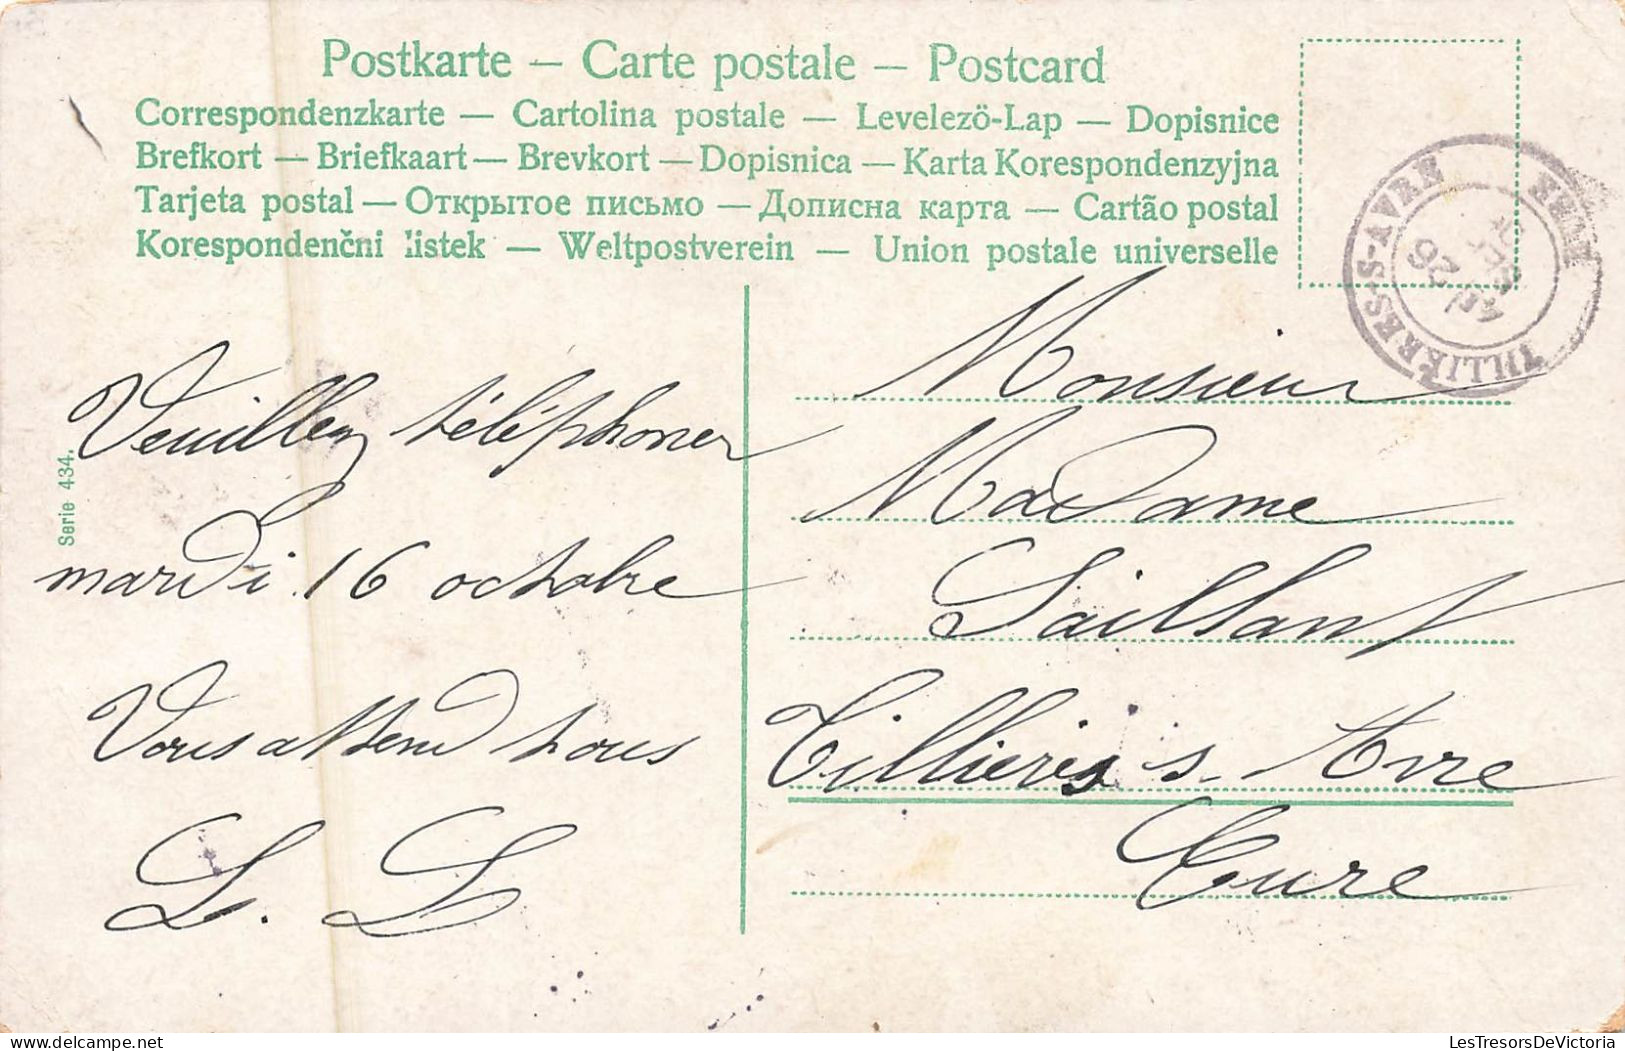 Postkarte — Carte postale — Postcard
Correspondenzkarte — Cartolina postale — Levelezö-Lap — Dopisnice
Brefkort — Briefkaart — Brevkort — Dopisnica — Karta Korespondenzyjna
Tarjeta postal — Открытое письмо — Дописна карта — Cartão postal
Korespondenčni listek — Weltpostverein — Union postale universelle
TILLIÈRES-S-AVRE
EURE
26
Serie 434.
Veuillez téléphoner
mardi 16 octobre
Vous attend tous
L. L
Monsieur
Madame
Saillant
Tillieres s Avre
Eure
LesTresorsDeVictoria